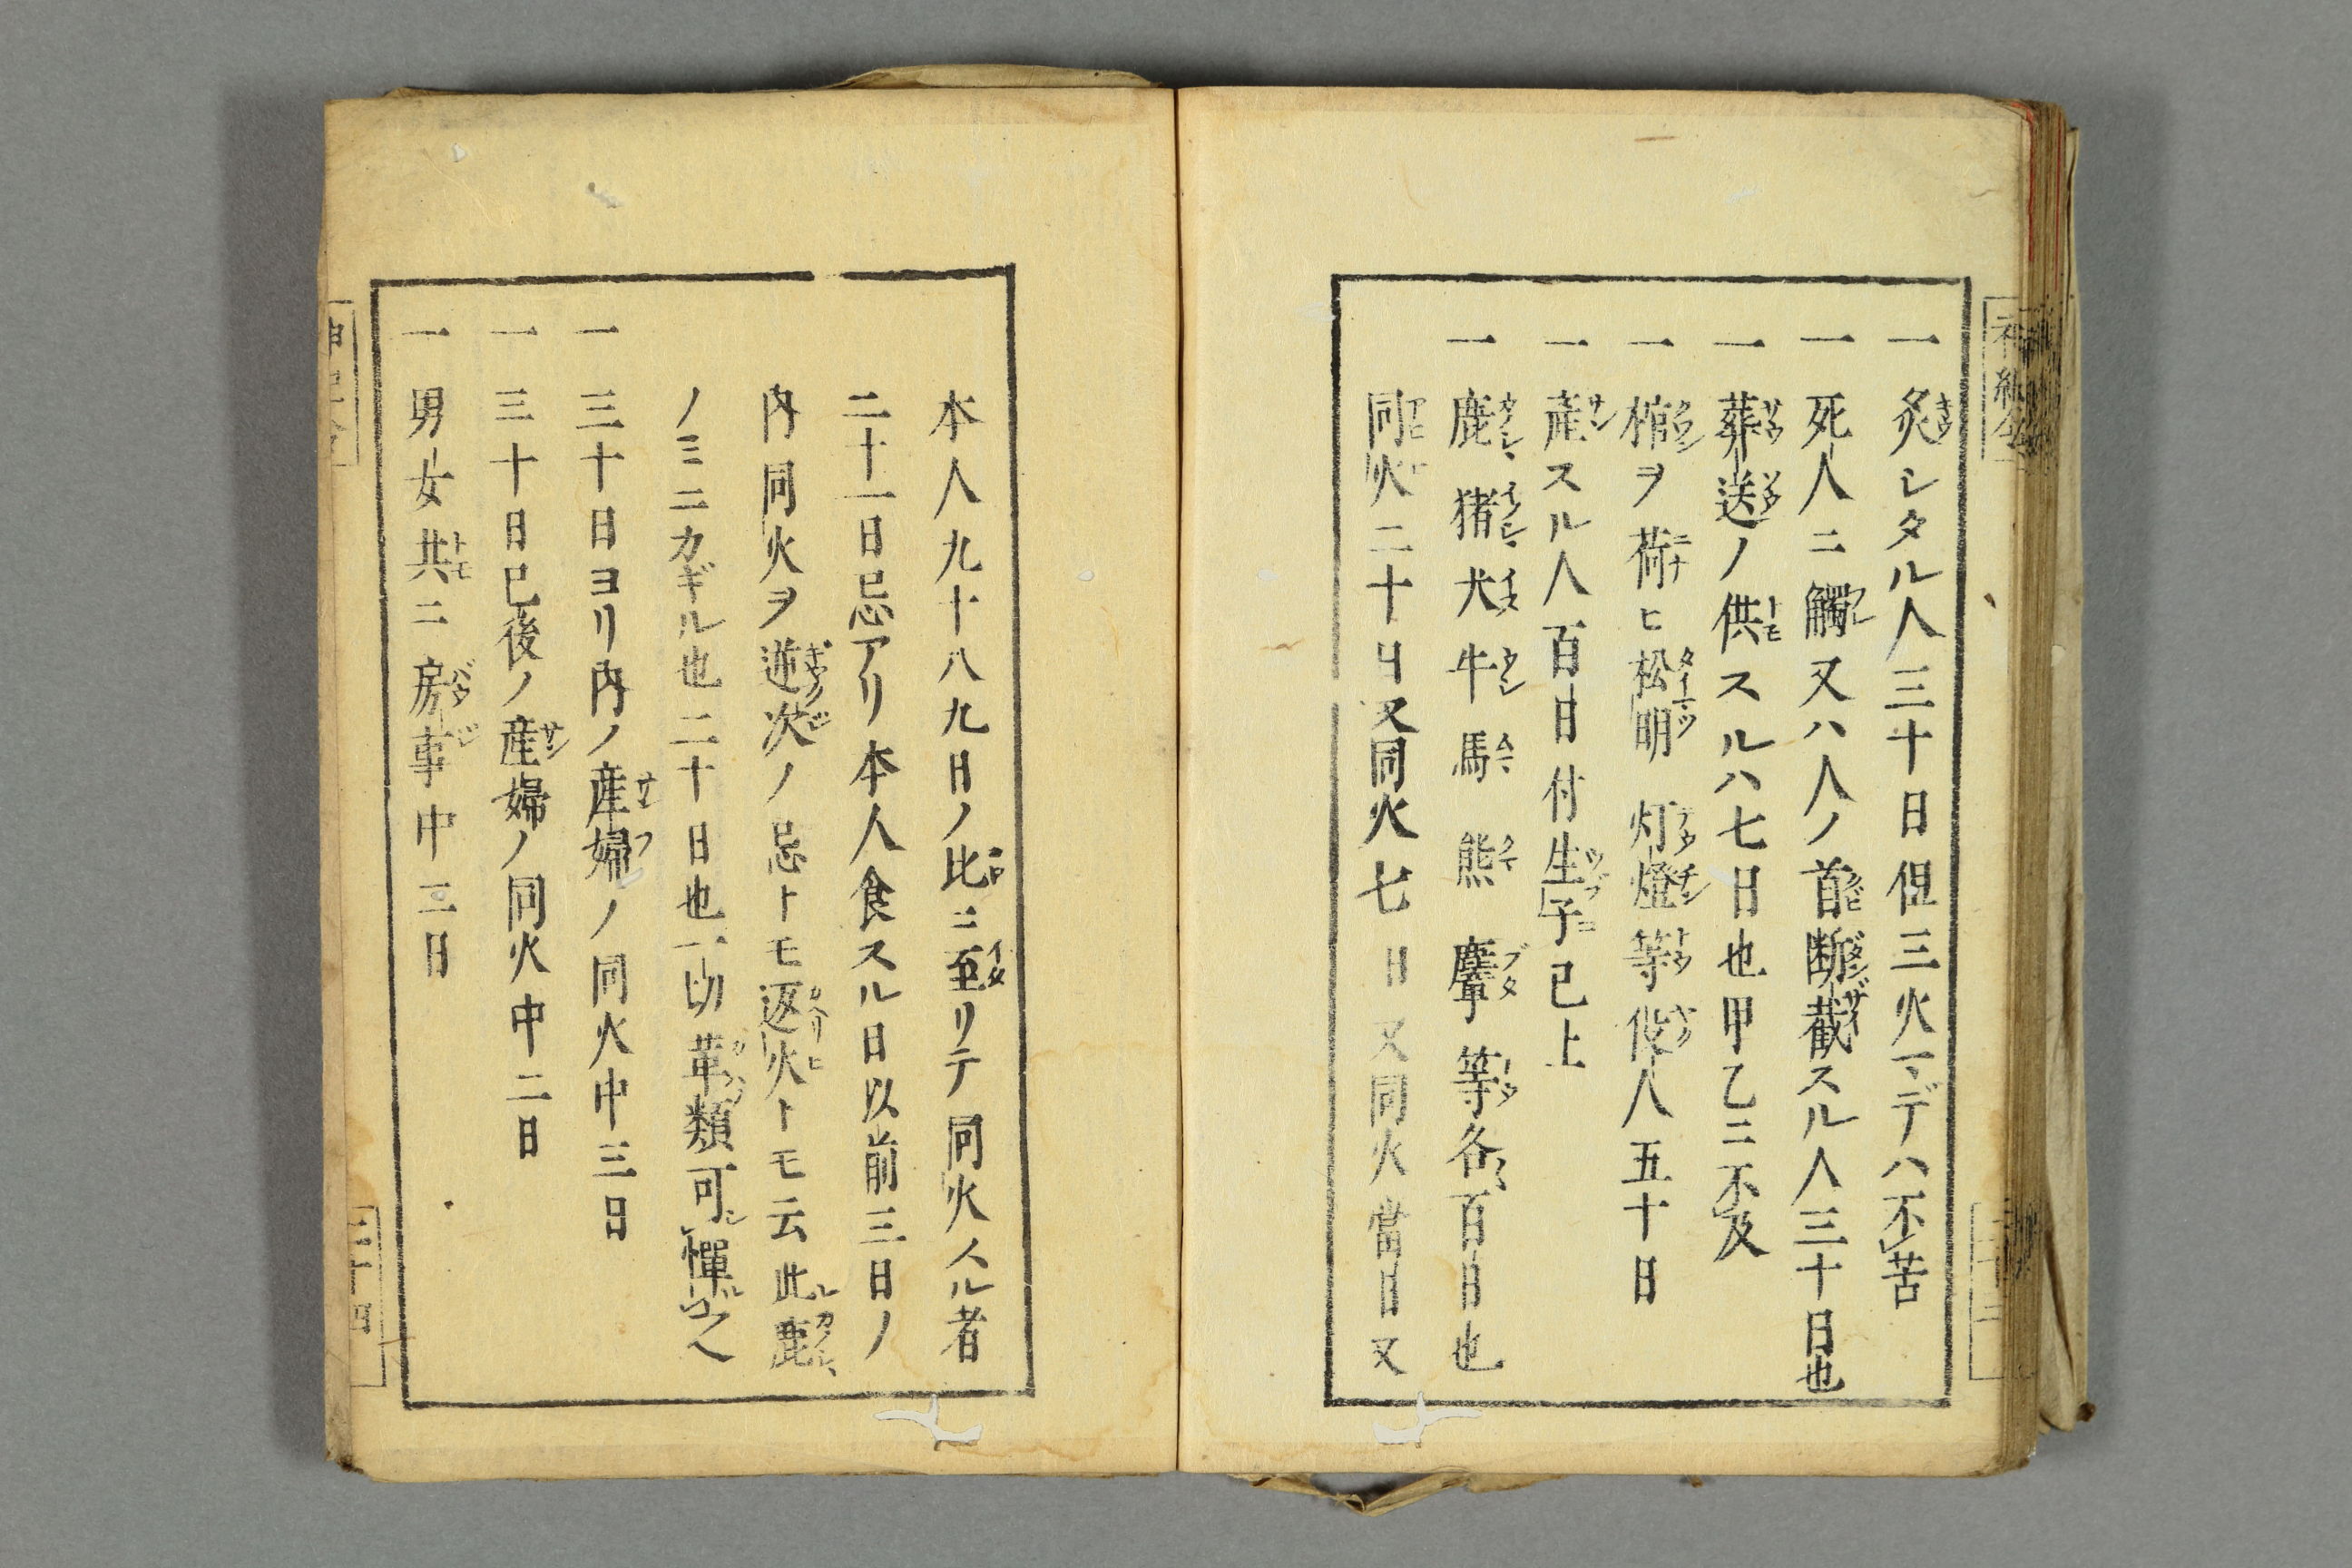 一 灸シタル人三十日但三火マデハ不苦
一 死人ニ觸又ハ人ノ首断截スル人三十日也
一 葬送ノ供スルハ七日也甲乙ニ不及
一 棺ヲ荷ヒ松明灯燈等役人五十日
一 産スル人百日付生子已上
一 鹿猪犬牛馬熊 等各百日也
同火二十日又同火七日又同火當日又
本人九十八九日ノ比ニ至リテ同火人ル者
二十一日忌アリ本人食スル日以前三日ノ
内同火ヲ逆次ノ忌トモ返火トモ云此鹿
ノミニカギル也二十日也一切革類可憚之
一 三十日ヨリ内ノ産婦ノ同火中三日
一 三十日已後ノ産婦ノ同火中二日
一 男女共ニ房事中三日
二十四